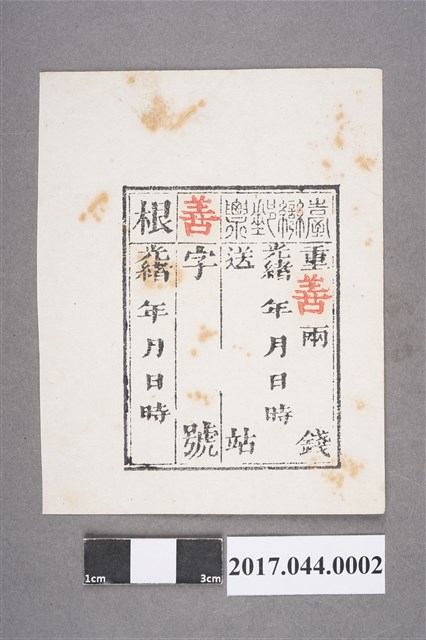 臺灣郵票
重善兩錢
光緒年月日時
送站
善字號
根
光緒年月日時
2017.044.0002
1cm 3cm